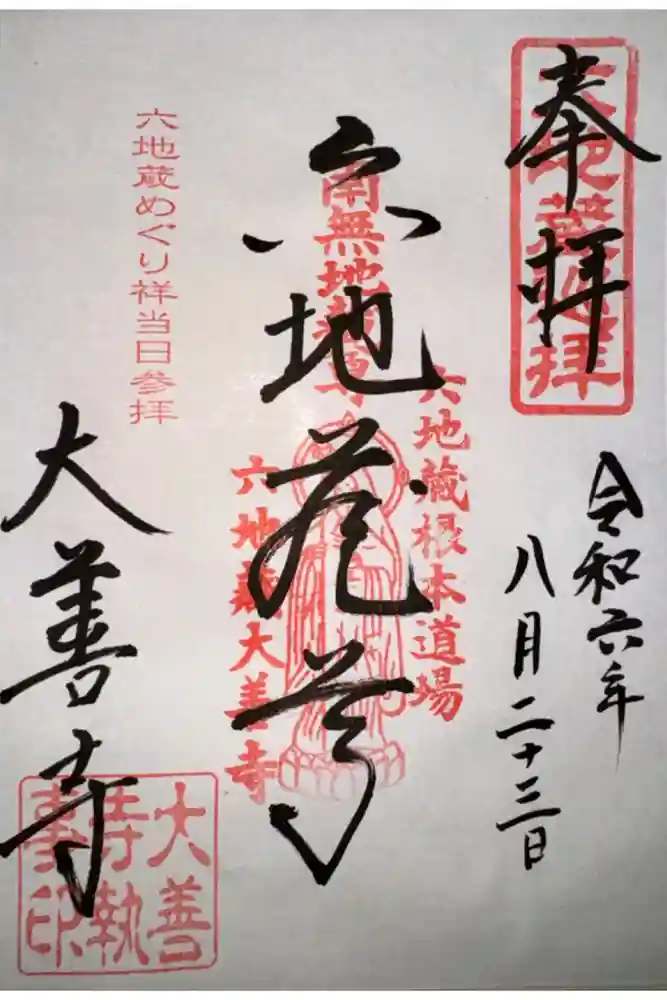 奉拝
令和六年
八月二十三日
六地蔵尊
南無地蔵尊
六地蔵根本道場
六地蔵大善寺
六地蔵めぐり祥当日参拝
大善寺
大善
寺執
事印